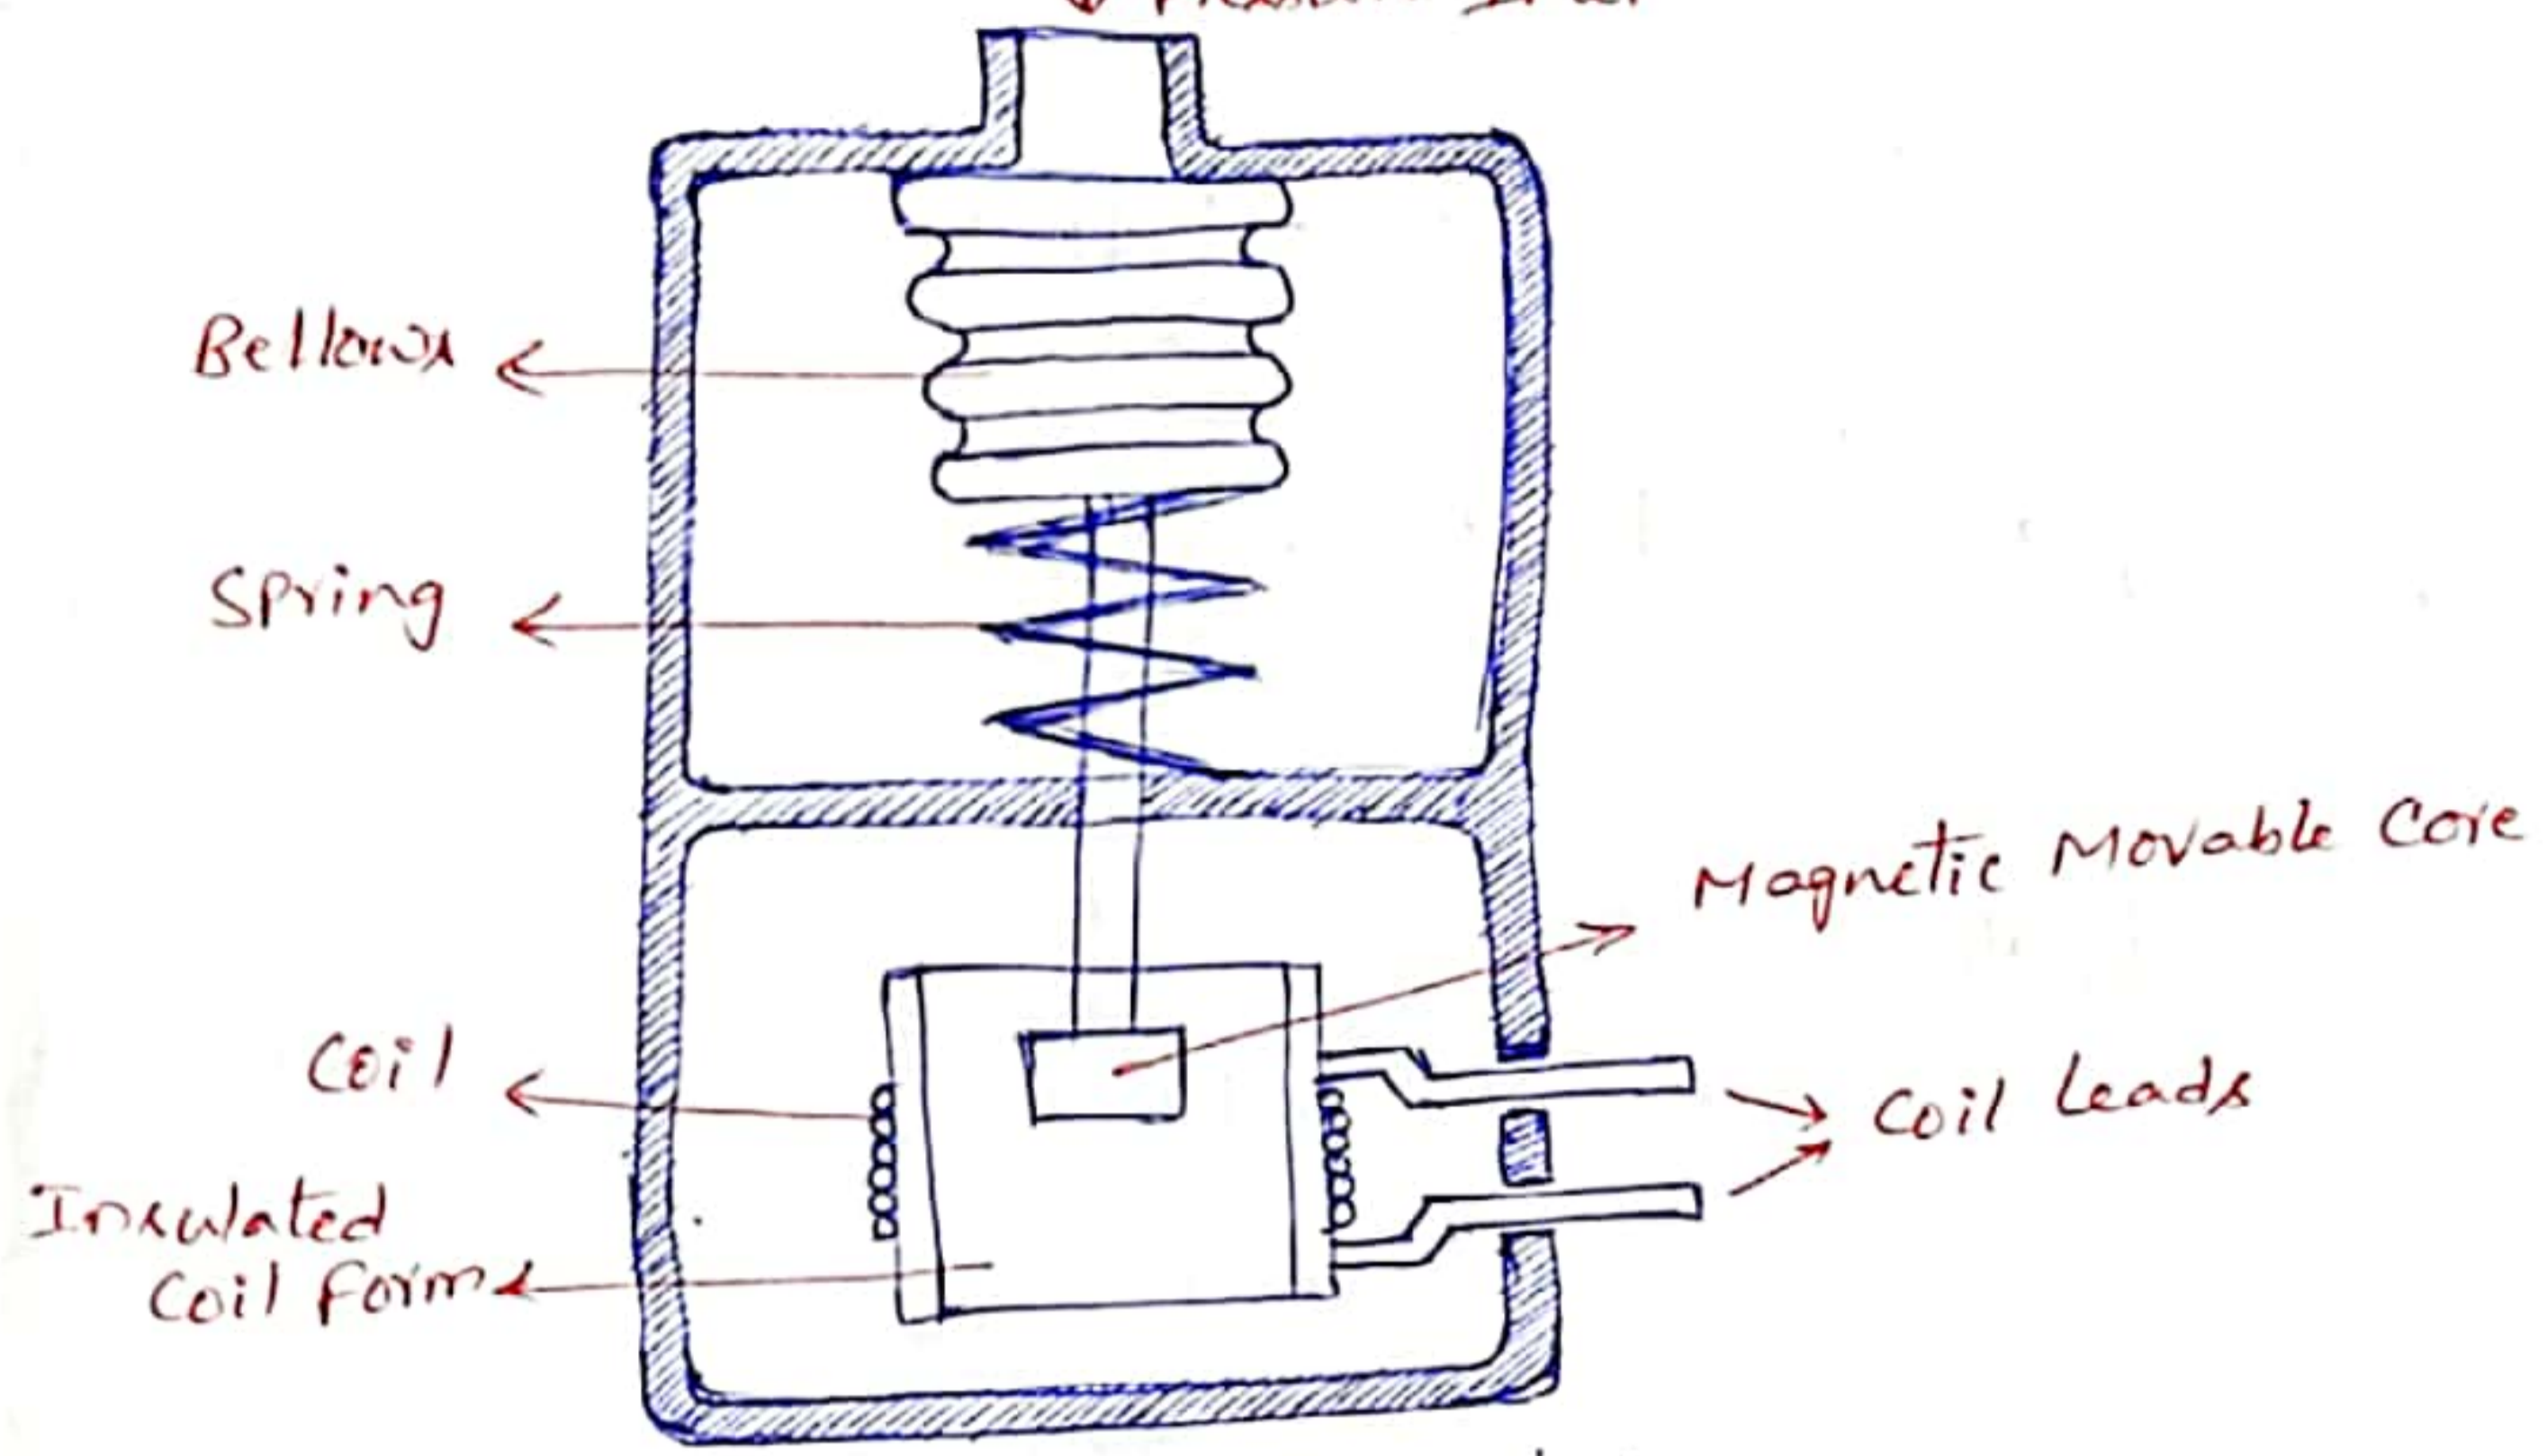 Bellows
Spring
Magnetic Movable Core
Coil
Coil Leads
Insulated
Coil Form